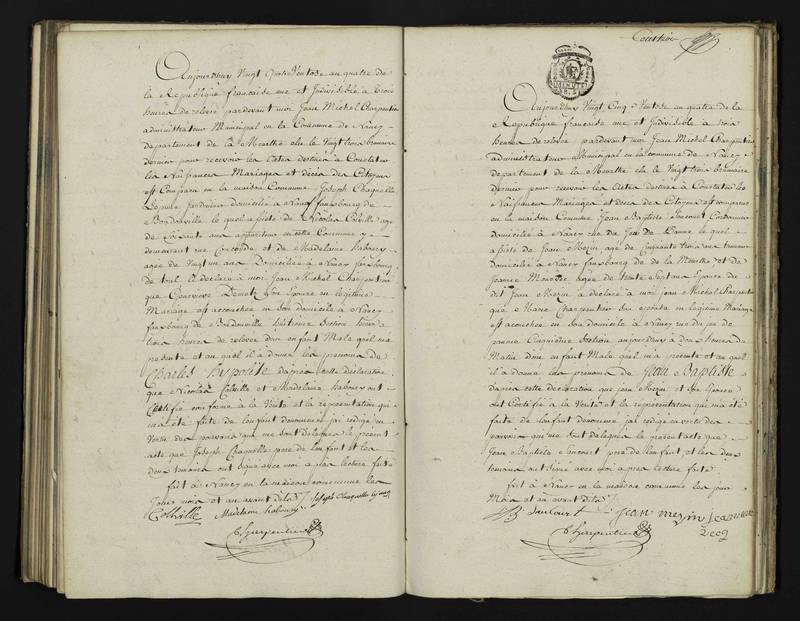 Aujourdhuy Vingt quatre Ventose an quatre de
la Republique francaise une et Indivisible a trois
heures de relevée pardevant moi Jean Michel Charpentier
administrateur Municipal en la Commune de Nancy
departement de la Meurthe elu le Vingt trois brumaire
dernier pour recevoir les actes destinés a Constater
les Naissances Mariages et décès des Citoyens
Est Comparu en la maison Commune Joseph Chaquelle
jardinier domicilié a Nancy fauxbourg de
Boudonville le quel assisté de Nicolas Colville agé
de Soixante ans en cette Commune y
demeurant rue et de Madelaine
agée de Vingt un ans Domiciliée a Nancy fauxbourg
de toul a déclaré a moi Jean Michel Charpentier
que Genevieve Son Epouse en legitime
Mariage est accouchée en Son domicile a Nancy
fauxbourg de Boudonville huitieme Section heure a
trois heures de relevée d'un enfant Male quel m'a
présenté et au quel il a donné les prenoms de
Charles hypolite dapres cette déclaration
que Nicolas Colville et Madelaine ont
Certifié conforme a la Verité et la représentation qui
ma été faite de l'enfant denommé jai redigé en
Vertu des pouvoirs qui me sont delegués le présent
acte que Joseph Chaquelle pere de l'enfant et les
deux temoins ont signé avec moi a pres lecture faite
fait a Nancy en la maison commune les
Jour mois et an avant dits
Colville Madelaine Joseph Chaquelle
Charpentier
Aujourdhuy Vingt Cinq Ventose an quatre de la
Republique francaise une et Indivisible a trois
heures de relevée pardevant moi Jean Michel Charpentier
administrateur Municipal en la commune de Nancy
departement de la Meurthe elu le Vingt trois brumaire
dernier pour recevoir les Actes destinés a Constater les
Naissances Mariages et décès des Citoyens est comparu
en la maison Commune Jean Baptiste
domicilié a Nancy rue du le quel
assisté de Jean agé de Cinquante trois ans
domicilié a Nancy fauxbourg de la Meurthe et de
Jeanne agée de trente Sept ans Epouse de
dit Jean a déclaré a Moi Jean Michel Charpentier
que Marie Charpentier Son epouse en legitime Mariage
est accouchée en Son domicile a Nancy rue du
Cinquieme Section aujourdhuy a heures du
Matin d'un enfant Male quel m'a présenté et au quel
il a donné les prenoms de Jean Baptiste
dapres cette déclaration que Jean et Son Epouse
ont Certifié a la Verité et la représentation qui ma été
faite de l'enfant denommé jai redigé en vertu des
pouvoirs qui me sont delegués le présent acte que
Jean Baptiste pere de l'enfant et les deux
temoins ont signé avec moi a pres lecture faite
fait a Nancy en la maison commune les jour
Mois et an avant dits
Jean
Charpentier